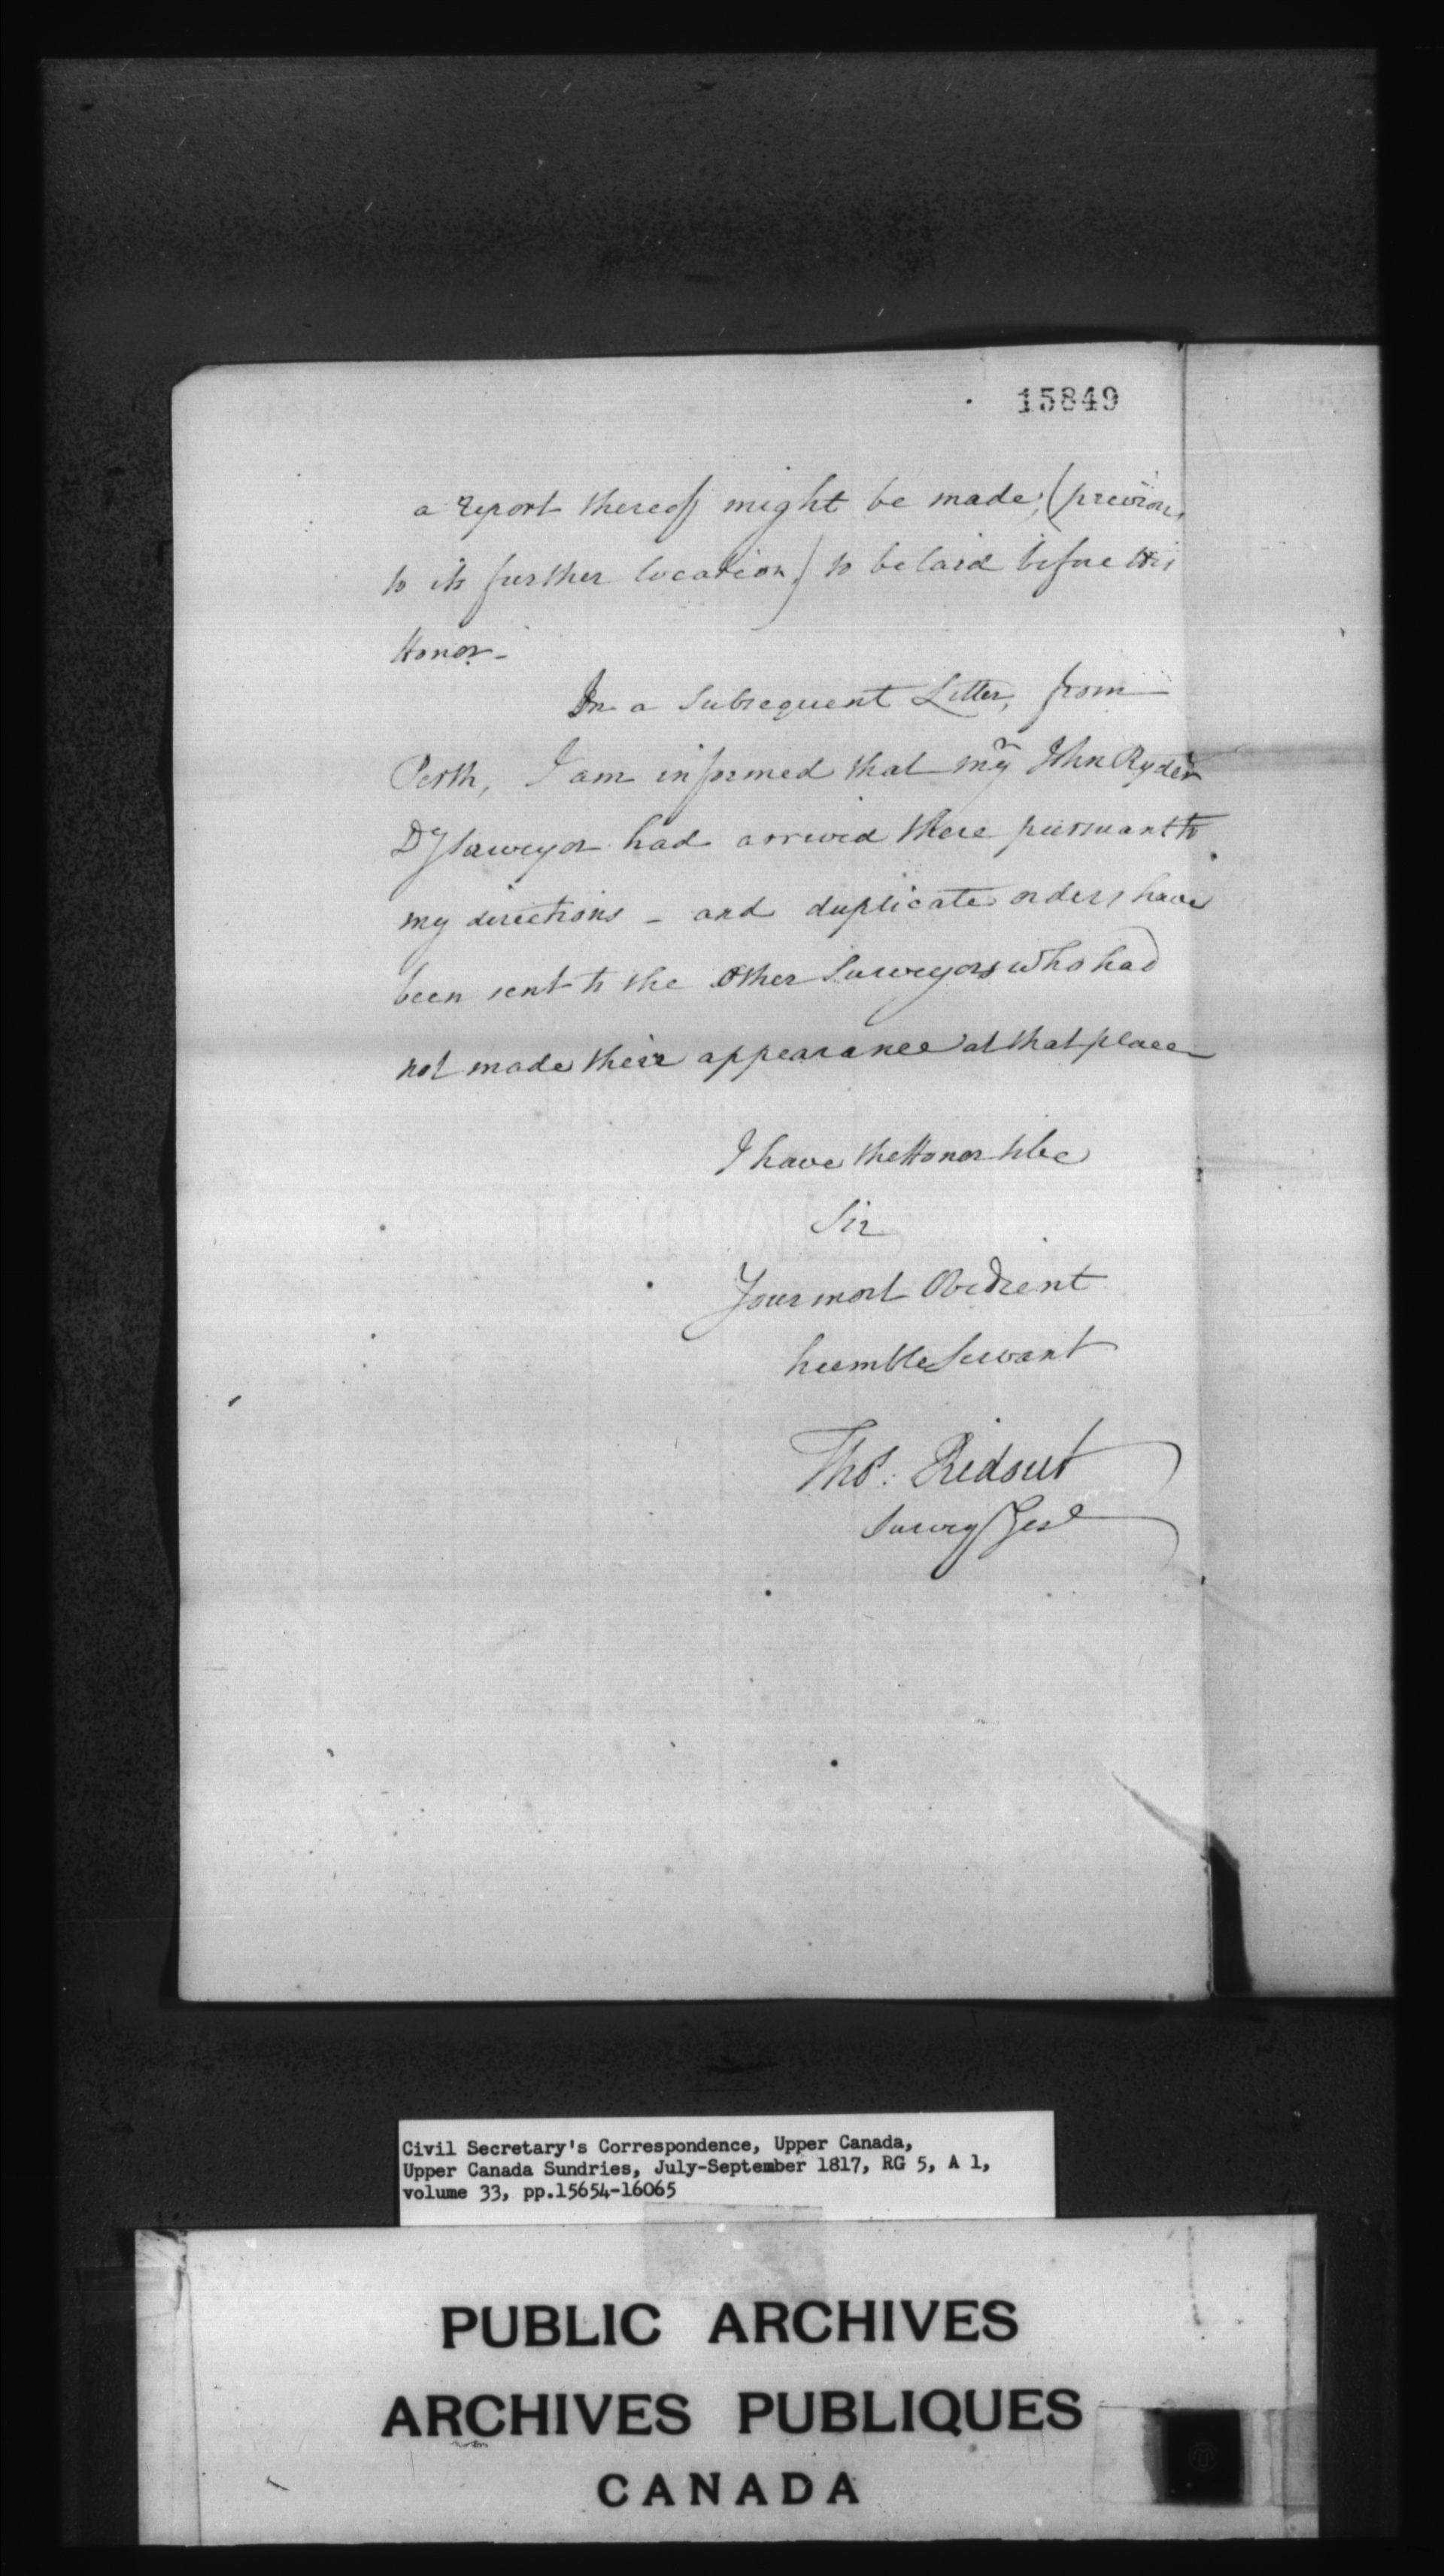 15849
a report thereof might be made, (previous
to its further location) to be laid before His
Honor -
In a Subsequent Letter, from
Perth, I am informed that John Ryder
Dy Surveyor had arrived there pursuant to
my directions - and duplicate orders have
been sent to the Other Surveyors who had
not made their appearance at that place -
I have the Honor to be
Sir
Your most Obedient
humble Servant
Thos. Ridout
Survey Genl
Civil Secretary's Correspondence, Upper Canada,
Upper Canada Sundries, July-September 1817, RG 5, A 1,
volume 33, pp.15654-16065
PUBLIC ARCHIVES
ARCHIVES PUBLIQUES
CANADA